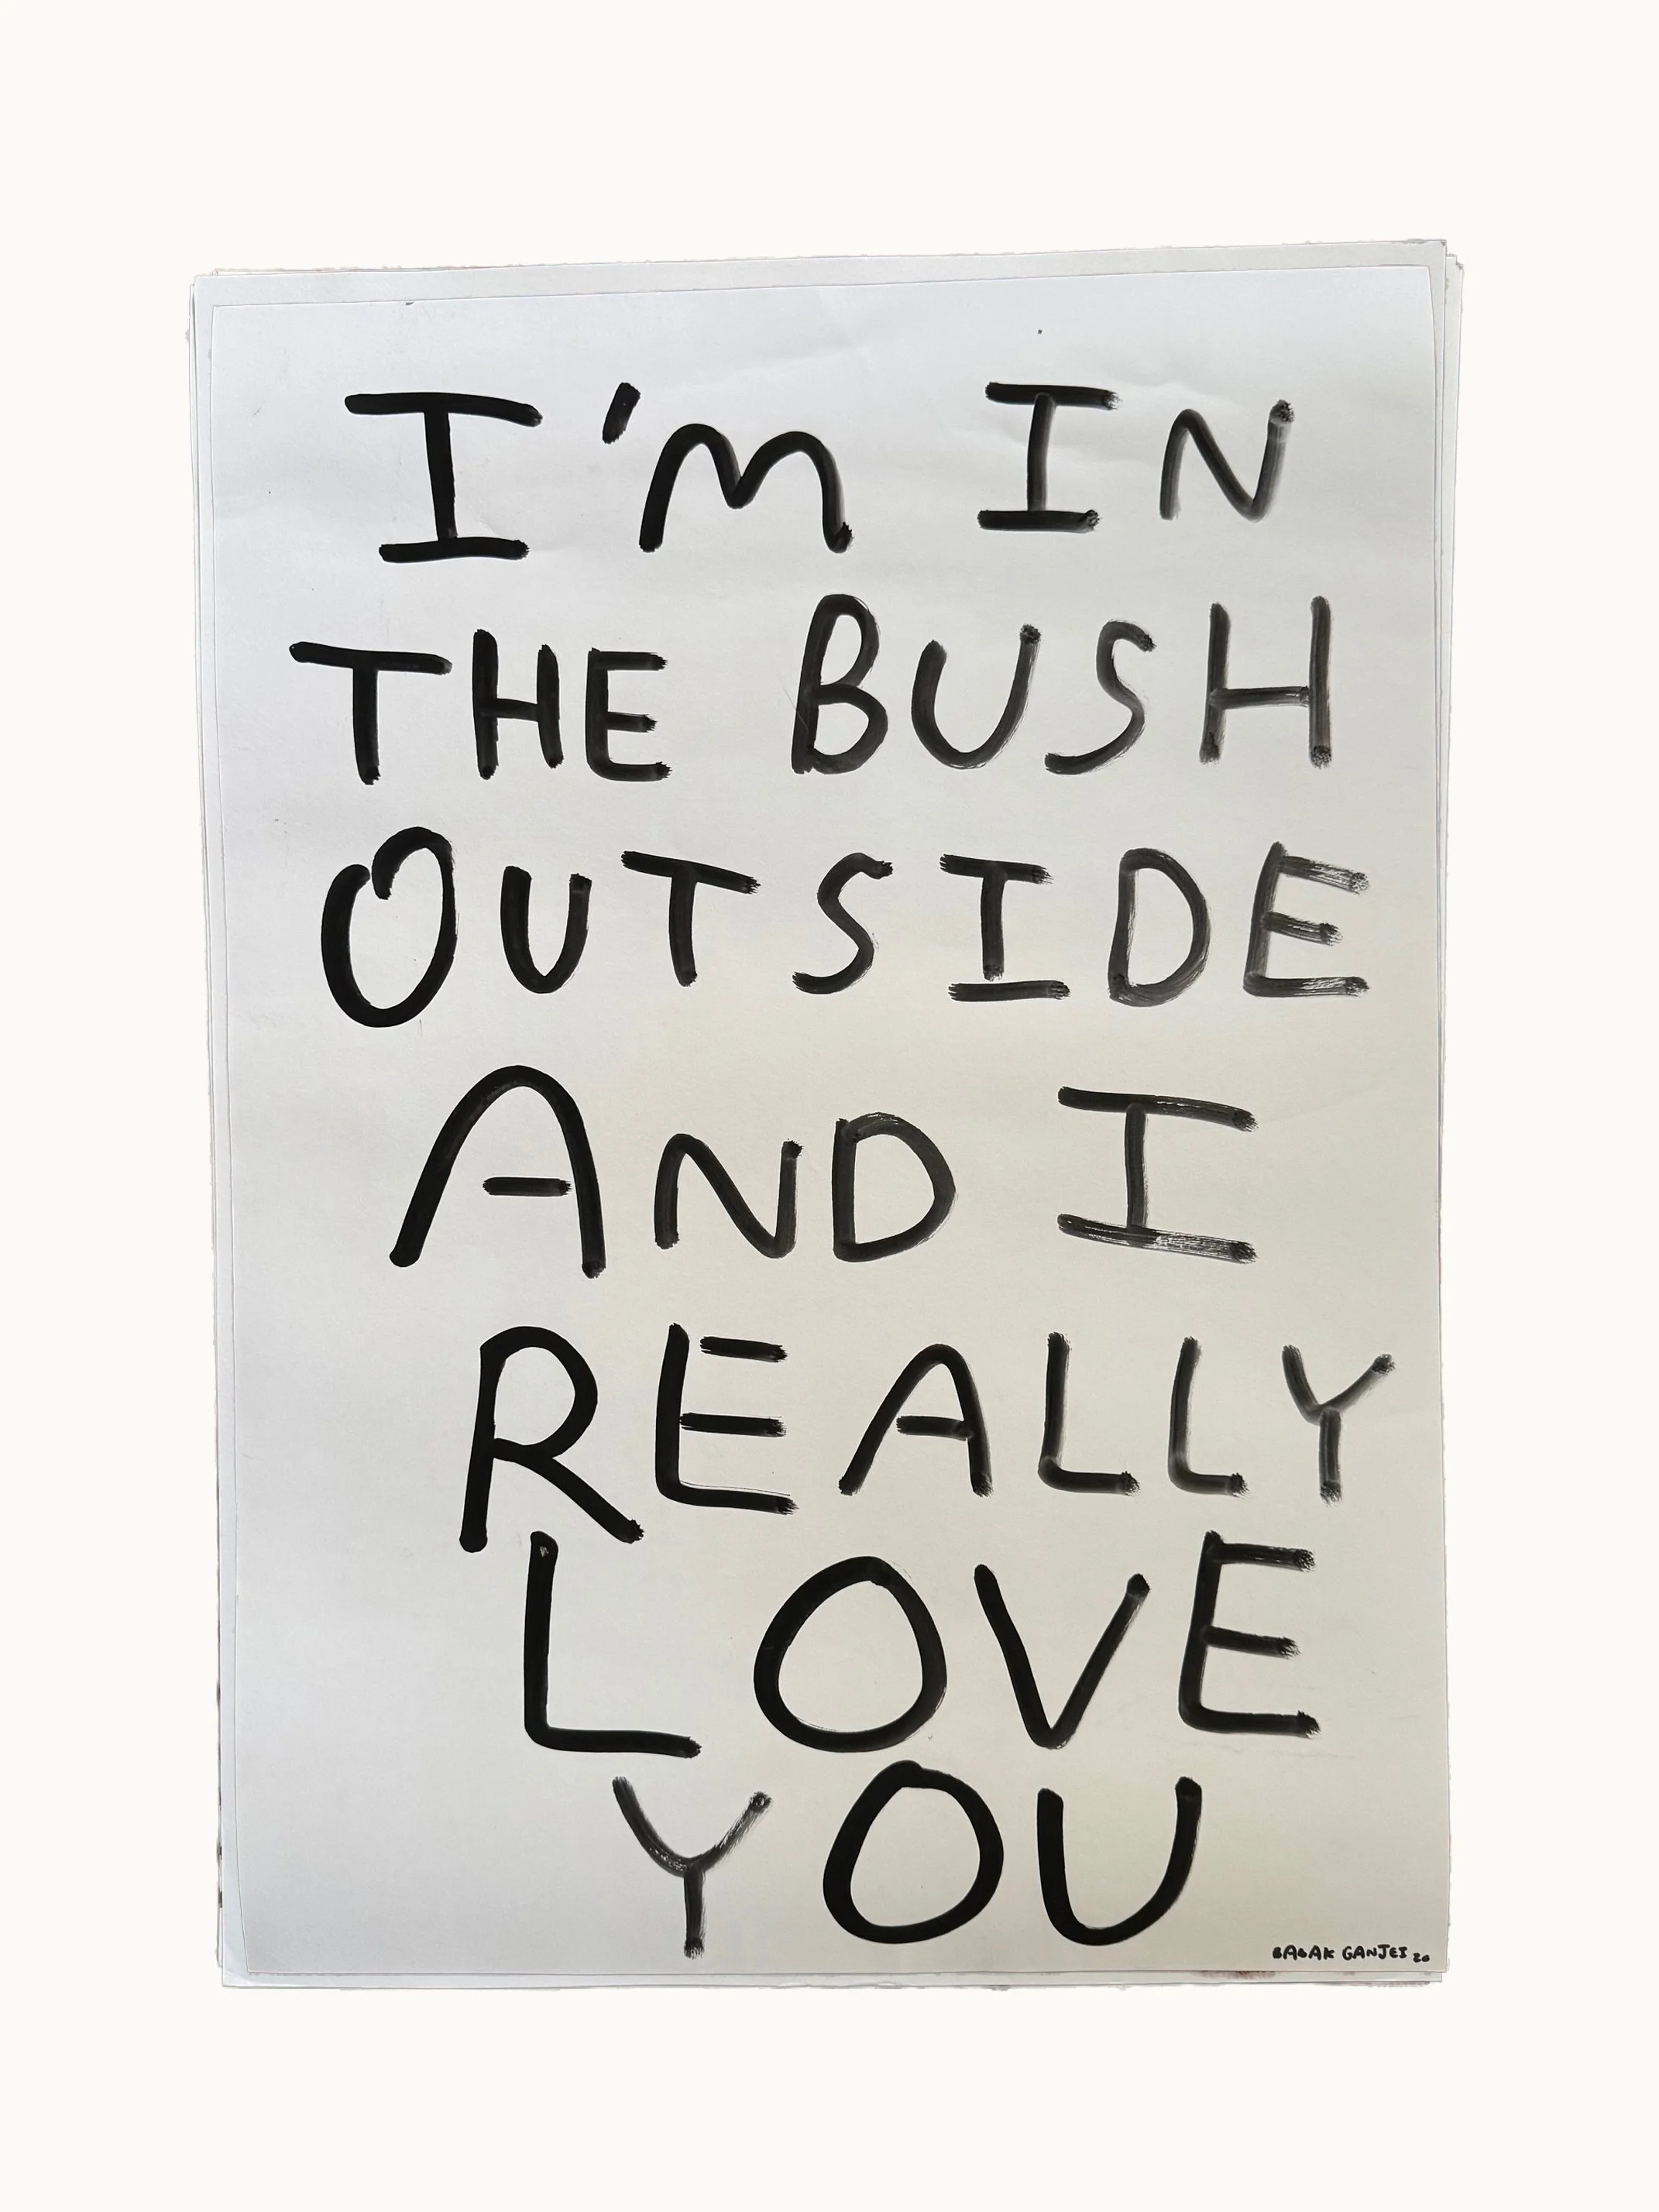 I'm IN
THE BUSH
OUTSIDE
AND I
REALLY
LOVE
YOU
BABAK GANJEI 20